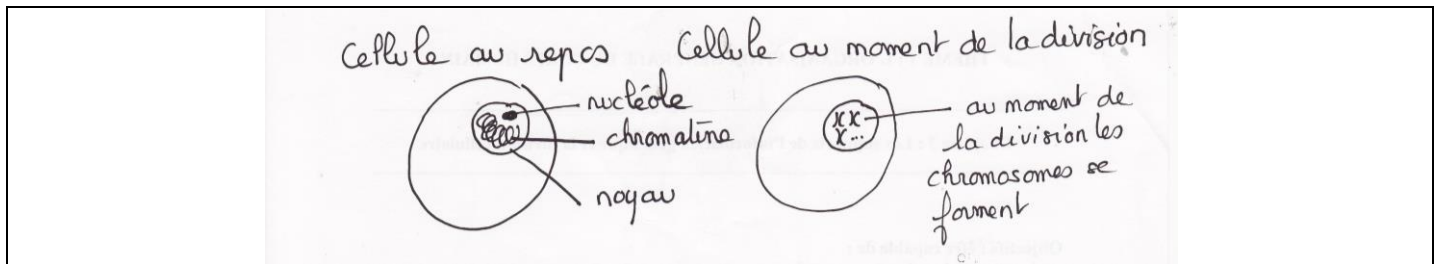 Cellule au repos
Cellule au moment de la division
nucléole
chromatine
noyau
au moment de
la division les
chromosomes se
forment